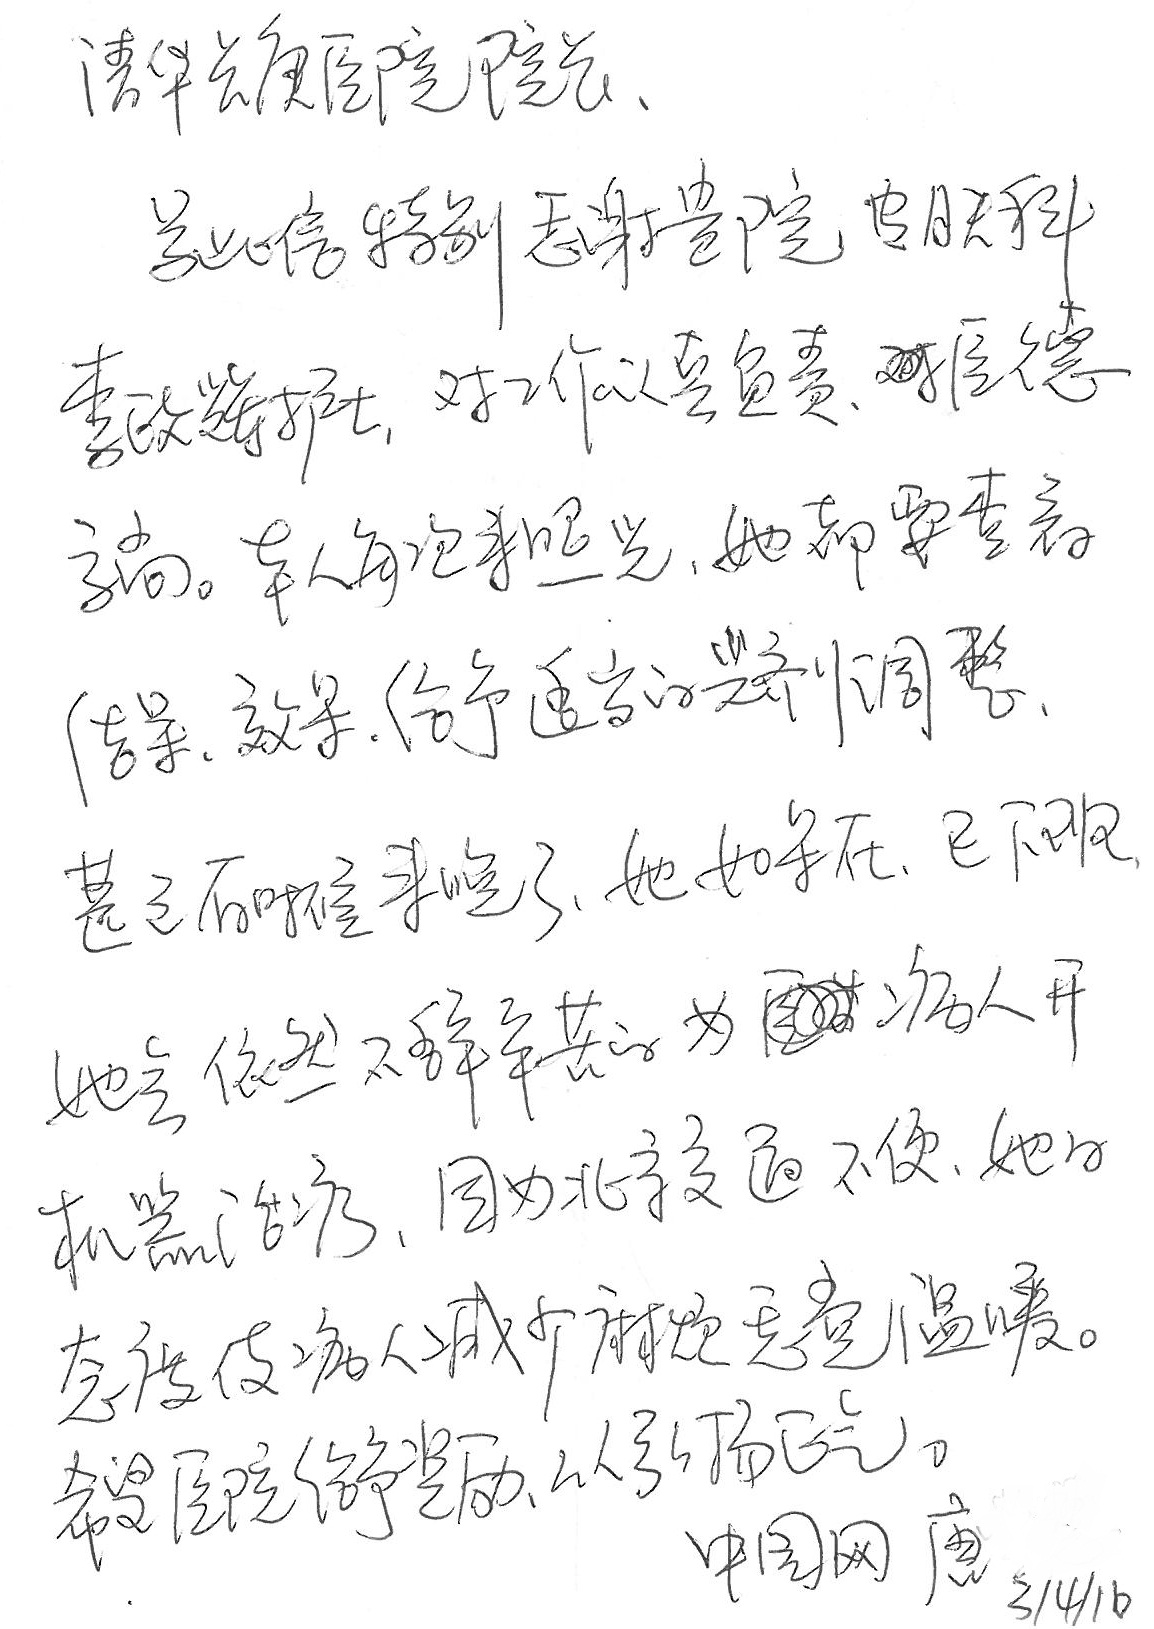 清华长庚医院院长、
写此信特别感谢贵院皮肤科
李政辉护士, 对工作认真负责、对医德
高尚。本人每次来照光、她都要查看
结果、效果、给予适当的剂调整、
甚至有时候来晚了、她如果在、已下班、
她会依然不辞辛苦的为病人开
机器治疗、因为北京交通不便、她的
态度使病人减少麻烦感觉温暖。
希望医院给予奖励、以弘扬正气。
中国网 唐
5/4/16